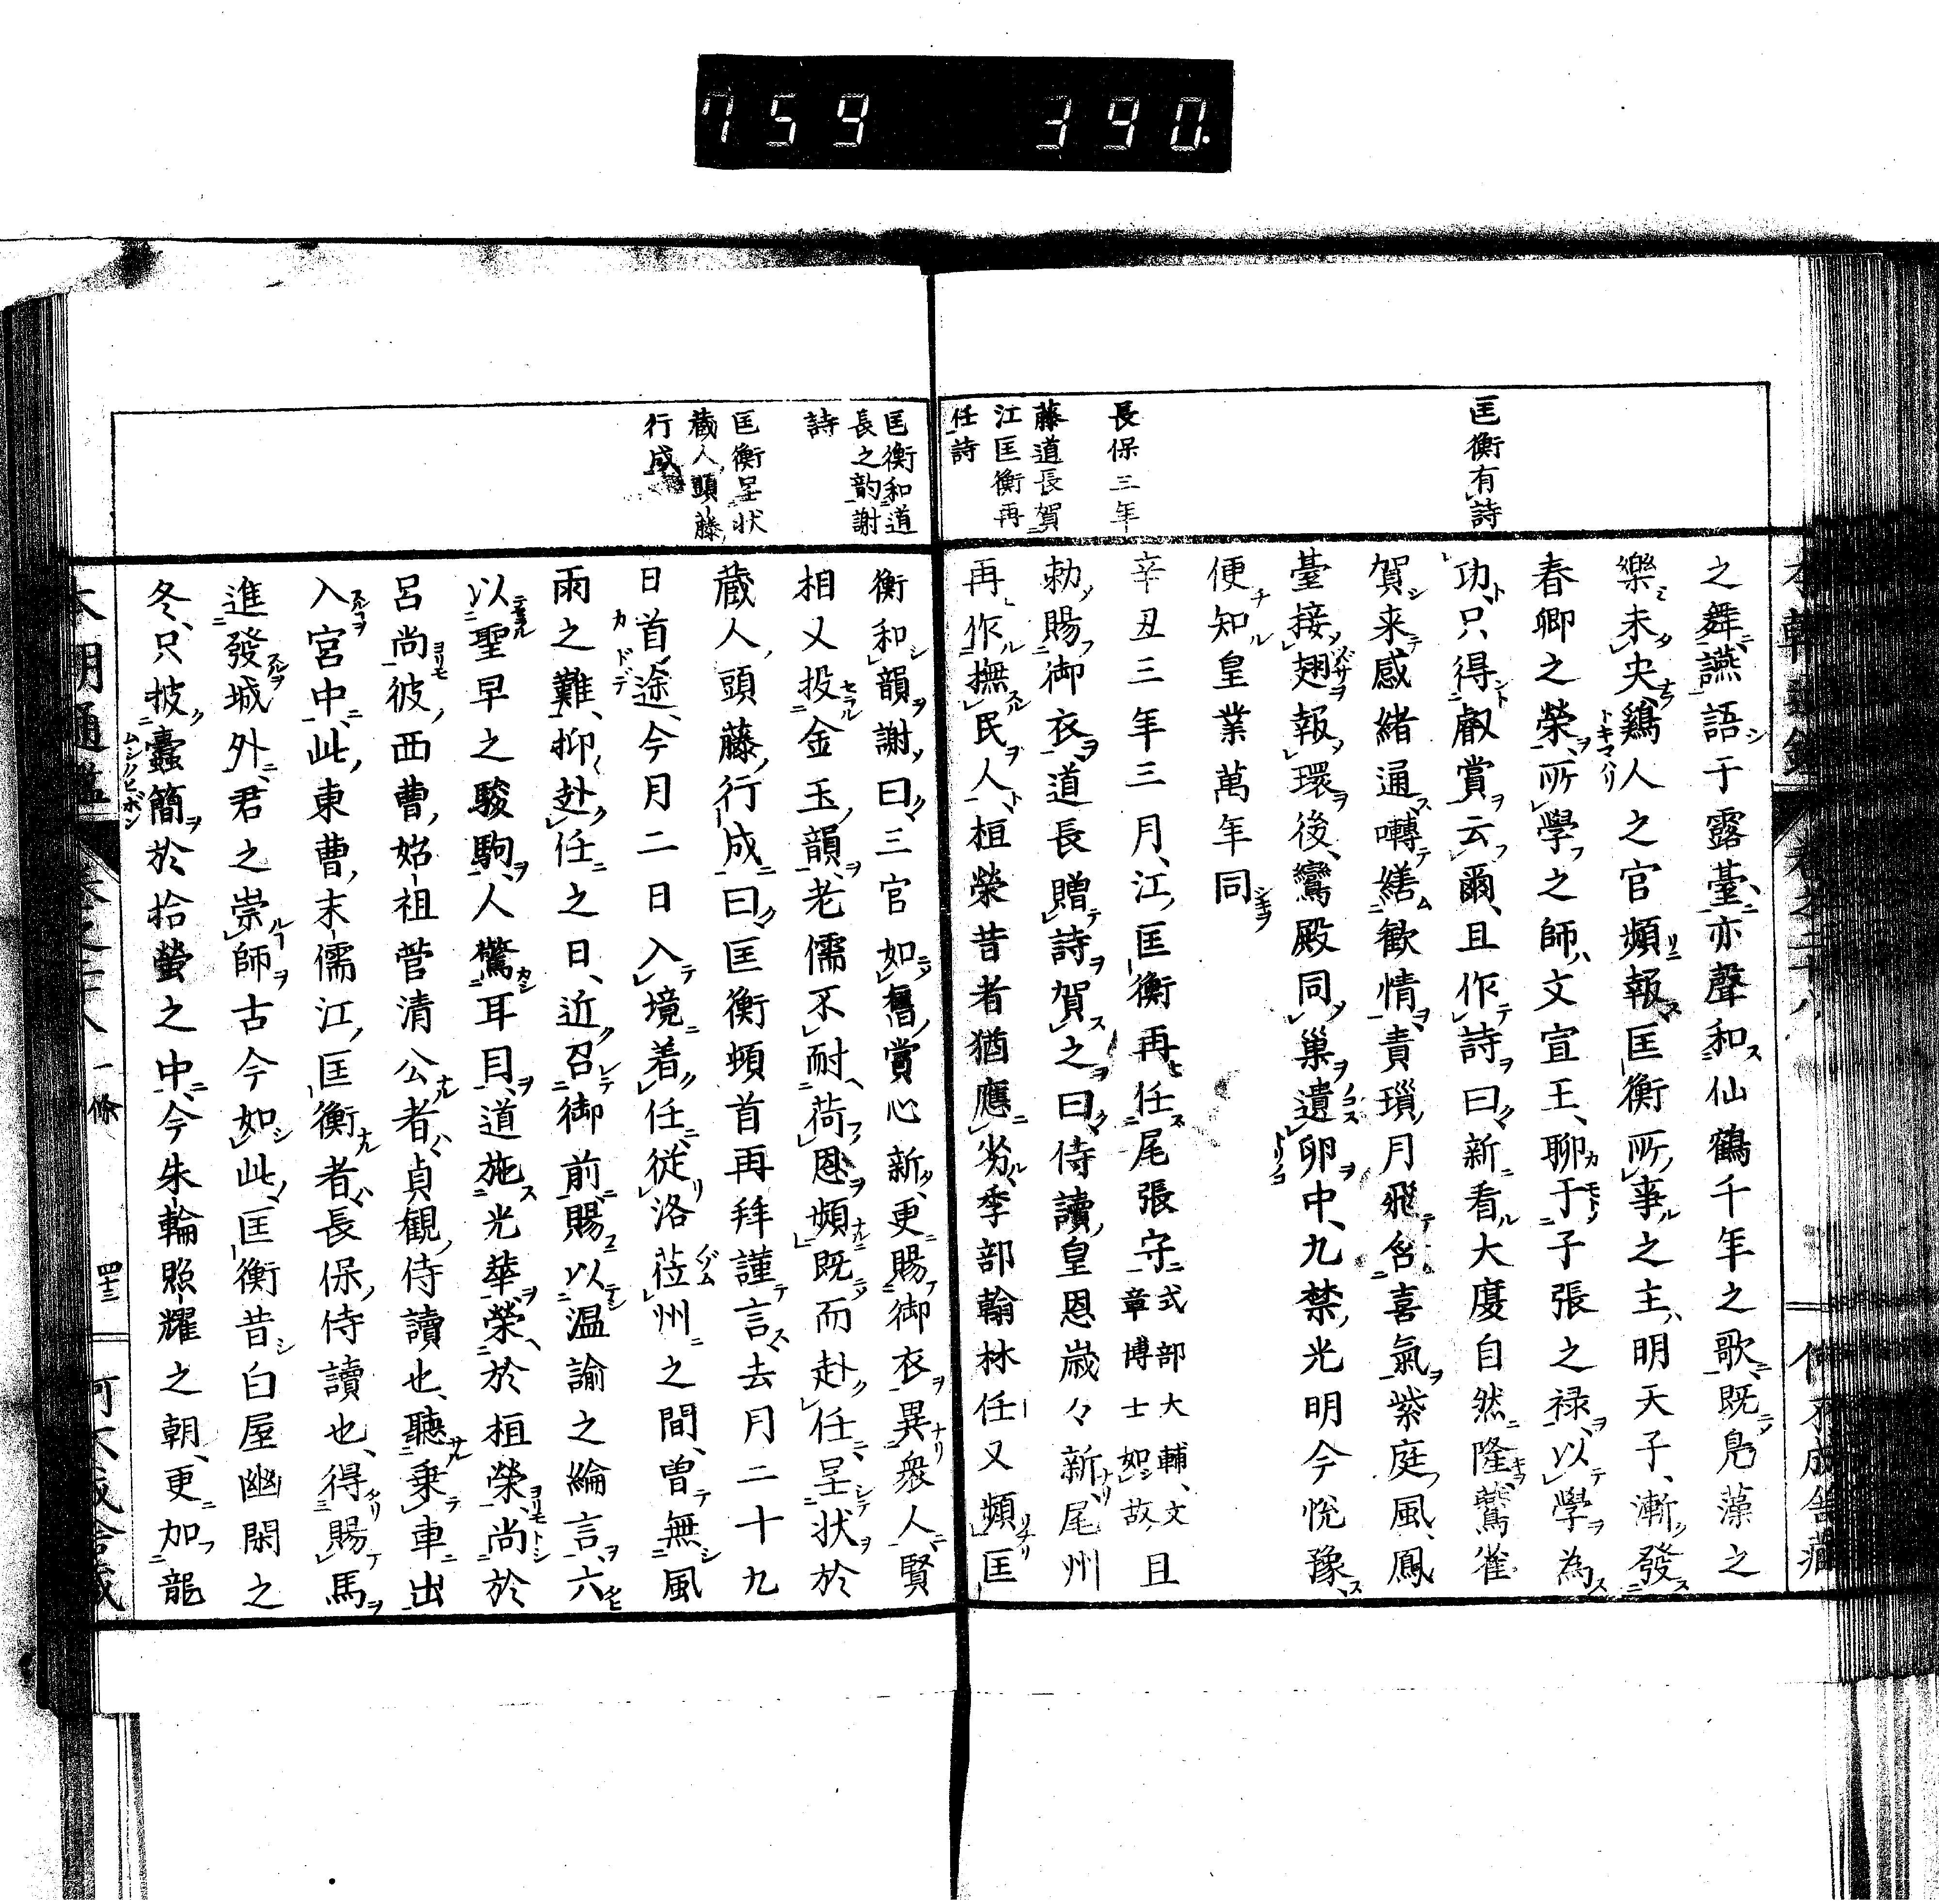 759 390.
匡衡有詩
長保三年
藤道長賀
江匡衡再
任詩
之舞讌語于露臺亦聲和仙鶴千年之歌既鳧藻之
樂未央鷄人之官頻報匡衡所事之主明天子漸發
春卿之榮所學之師文宣王聊于子張之祿以學為
功只得叡賞云爾且作詩曰新看大廈自然隆鷰雀
賀来感緒通囀繕歓情責瑣月飛含喜氣紫庭風鳳
臺接翅報環後鸞殿同巢遺卵中九禁光明今悦豫
便知皇業萬年同
辛丑三年三月江匡衡再任尾張守式部大輔文章博士如故且
勅賜御衣道長贈詩賀之曰侍讀皇恩歳々新尾州
再作撫民人桓榮昔者猶應劣季部翰林任又頻匡
匡衡和道
長之韵謝
詩
匡衡呈状
藏人頭藤
行成
衡和韻謝曰三官如舊賞心新更賜御衣異衆人賢
相又投金玉韻老儒不耐荷恩頻既而赴任呈状於
藏人頭藤行成曰匡衡頓首再拜謹言去月二十九
日首途今月二日入境着任従洛莅州之間曽無風
雨之難抑赴任之日近召御前賜以温諭之綸言六
以聖早之駿駒人驚耳目道施光華榮於桓榮尚於
呂尚彼西曹始祖菅清公者貞観侍讀也聽乗車出
入宮中此東曹末儒江匡衡者長保侍讀也得賜馬
進發城外君之崇師古今如此匡衡昔白屋幽閑之
冬只披蠹簡於拾螢之中今朱輪照耀之朝更加龍
一條
四十三